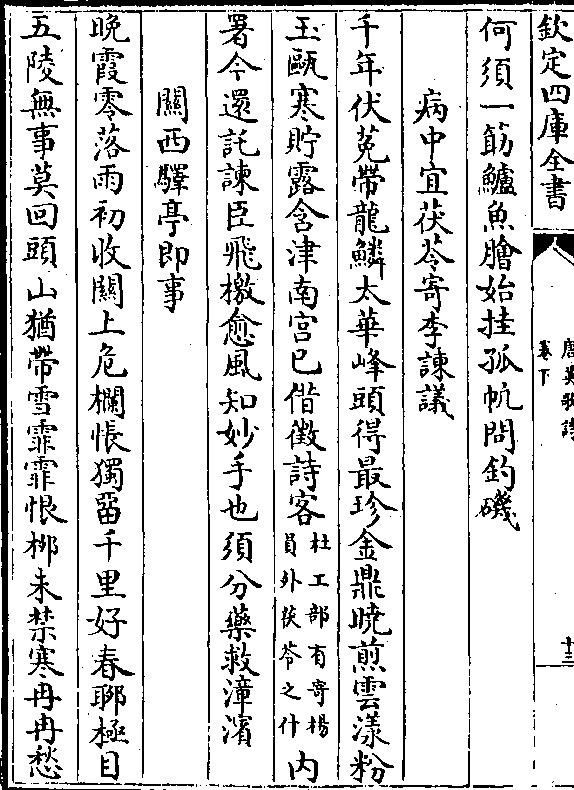 欽定四庫全書
唐英歌詩
卷下
十三
何須一筯鱸魚膾始挂孤帆問釣磯
病中宜茯苓寄李諫議
千年伏菟帶龍鱗太華峰頭得最珍金鼎曉煎雲漾粉
玉甌寒貯露含津南宫已借徵詩客杜工部有寄楊員外茯苓之什内
署今還託諫臣飛檄愈風知妙手也須分藥救漳濱
關西驛亭即事
晚霞零落雨初收關上危欄悵獨留千里好春聊極目
五陵無事莫回頭山猶帶雪霏霏恨栁未禁寒冉冉愁